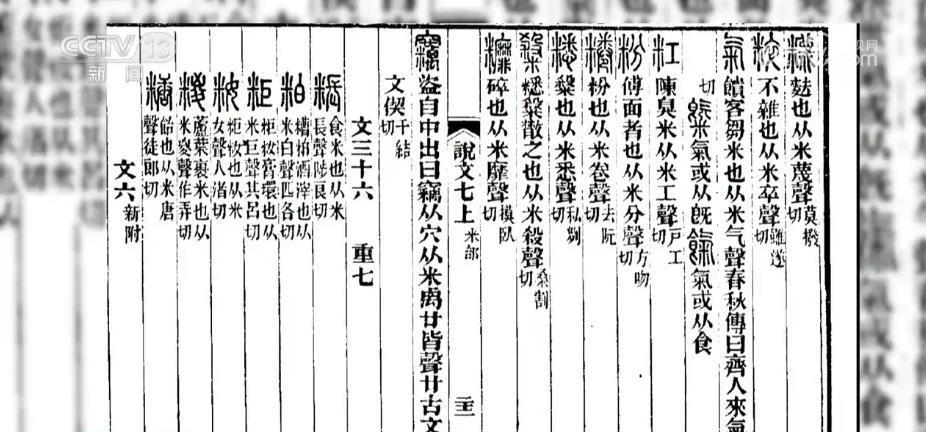 CCTV 13
新闻
麩也从米蔑聲莫撥切
粹不雜也从米卒聲雖遂切
氣饋客芻米也从米气聲春秋傳曰齊人來氣
切 氣或从旣 餼氣或从食
粠陳臭米从米工聲戶工切
粉傅面者也从米分聲方吻切
粉也从米卷聲去阮切
也从米悉聲私列切
散之也从米殺聲桑割切
糜碎也从米靡聲摸臥切
說文七上 米部
竊盗自中出曰竊从穴从米禼廿皆聲廿古文
文偰千結切
文三十六 重七
粻食米也从米長聲陟良切
粕糟粕酒滓也从米白聲匹各切
粔粔籹膏環也从米巨聲其呂切
籹粔籹也从米女聲人渚切
糉蘆葉裹米也从米㚇聲作弄切
糖飴也从米唐聲徒郎切
文六新附